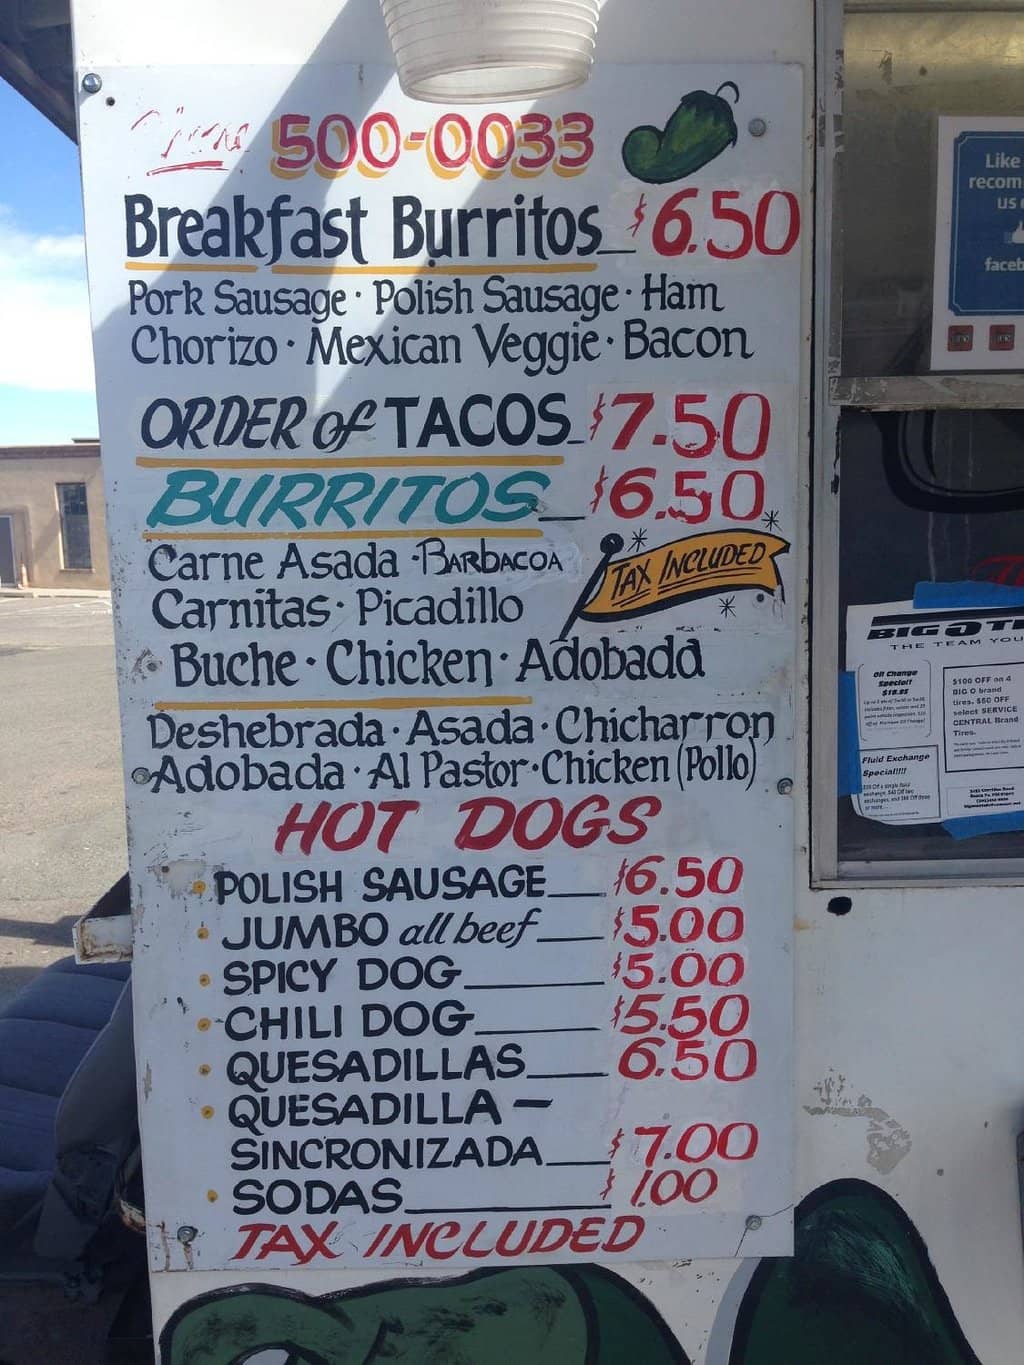 500-0033
Breakfast Burritos $6.50
Pork Sausage · Polish Sausage · Ham
Chorizo · Mexican Veggie · Bacon
ORDER of TACOS $7.50
BURRITOS $6.50
Carne Asada · BARBACOA
TAX INCLUDED
Carnitas · Picadillo
Buche · Chicken · Adobada
Deshebrada · Asada · Chicharron
Adobada · Al Pastor · Chicken (Pollo)
HOT DOGS
POLISH SAUSAGE $6.50
JUMBO all beef $5.00
SPICY DOG $5.00
CHILI DOG $5.50
QUESADILLAS 6.50
QUESADILLA —
SINCRONIZADA $7.00
SODAS $1.00
TAX INCLUDED
Like
recom
us
faceb
BIG O TI
THE TEAM YOU
Oil Change
Special!
$100 OFF on 4
BIG O brand
tires. $50 OFF
select SERVICE
CENTRAL Brand
Tires.
Fluid Exchange
Special!!!!